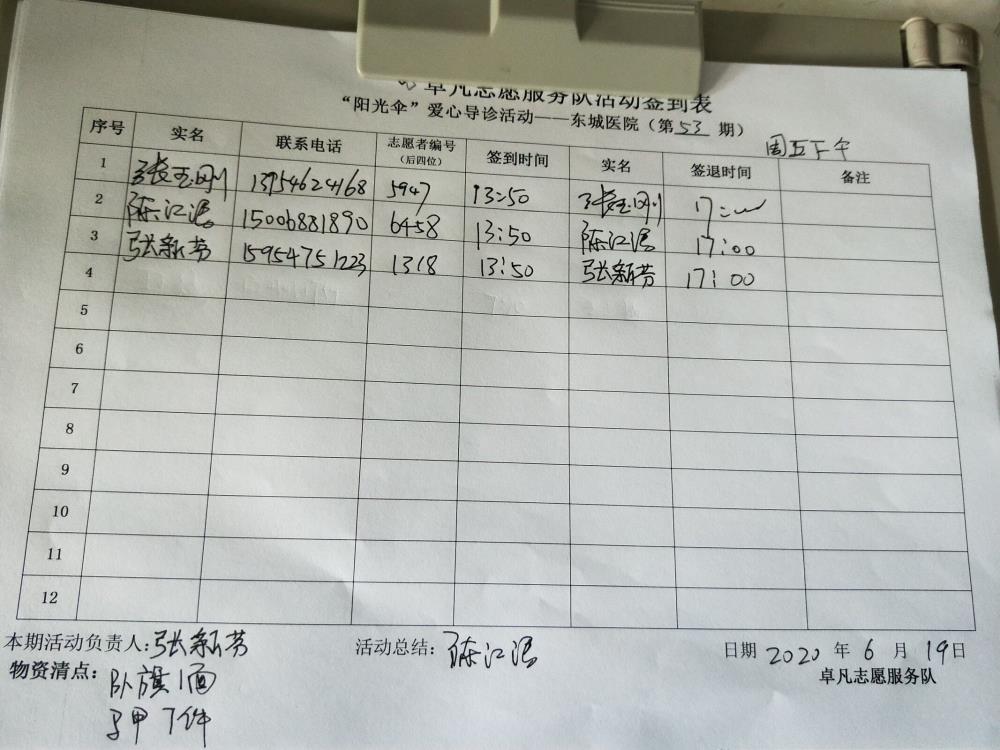 卓凡志愿服务队活动签到表
“阳光伞”爱心导诊活动——东城医院（第53期）
周五下午
序号 实名 联系电话 志愿者编号（后四位） 签到时间 实名 签退时间 备注
1 张玉刚 13954624168 5947 13:50 张玉刚 17:00
2 陈江浪 15006881890 6458 13:50 陈江浪 17:00
3 张新芳 15954751223 1318 13:50 张新芳 17:00
4
5
6
7
8
9
10
11
12
本期活动负责人:张新芳 活动总结: 陈江浪 日期 2020 年 6 月 19日
物资清点: 队旗1面 卓凡志愿服务队